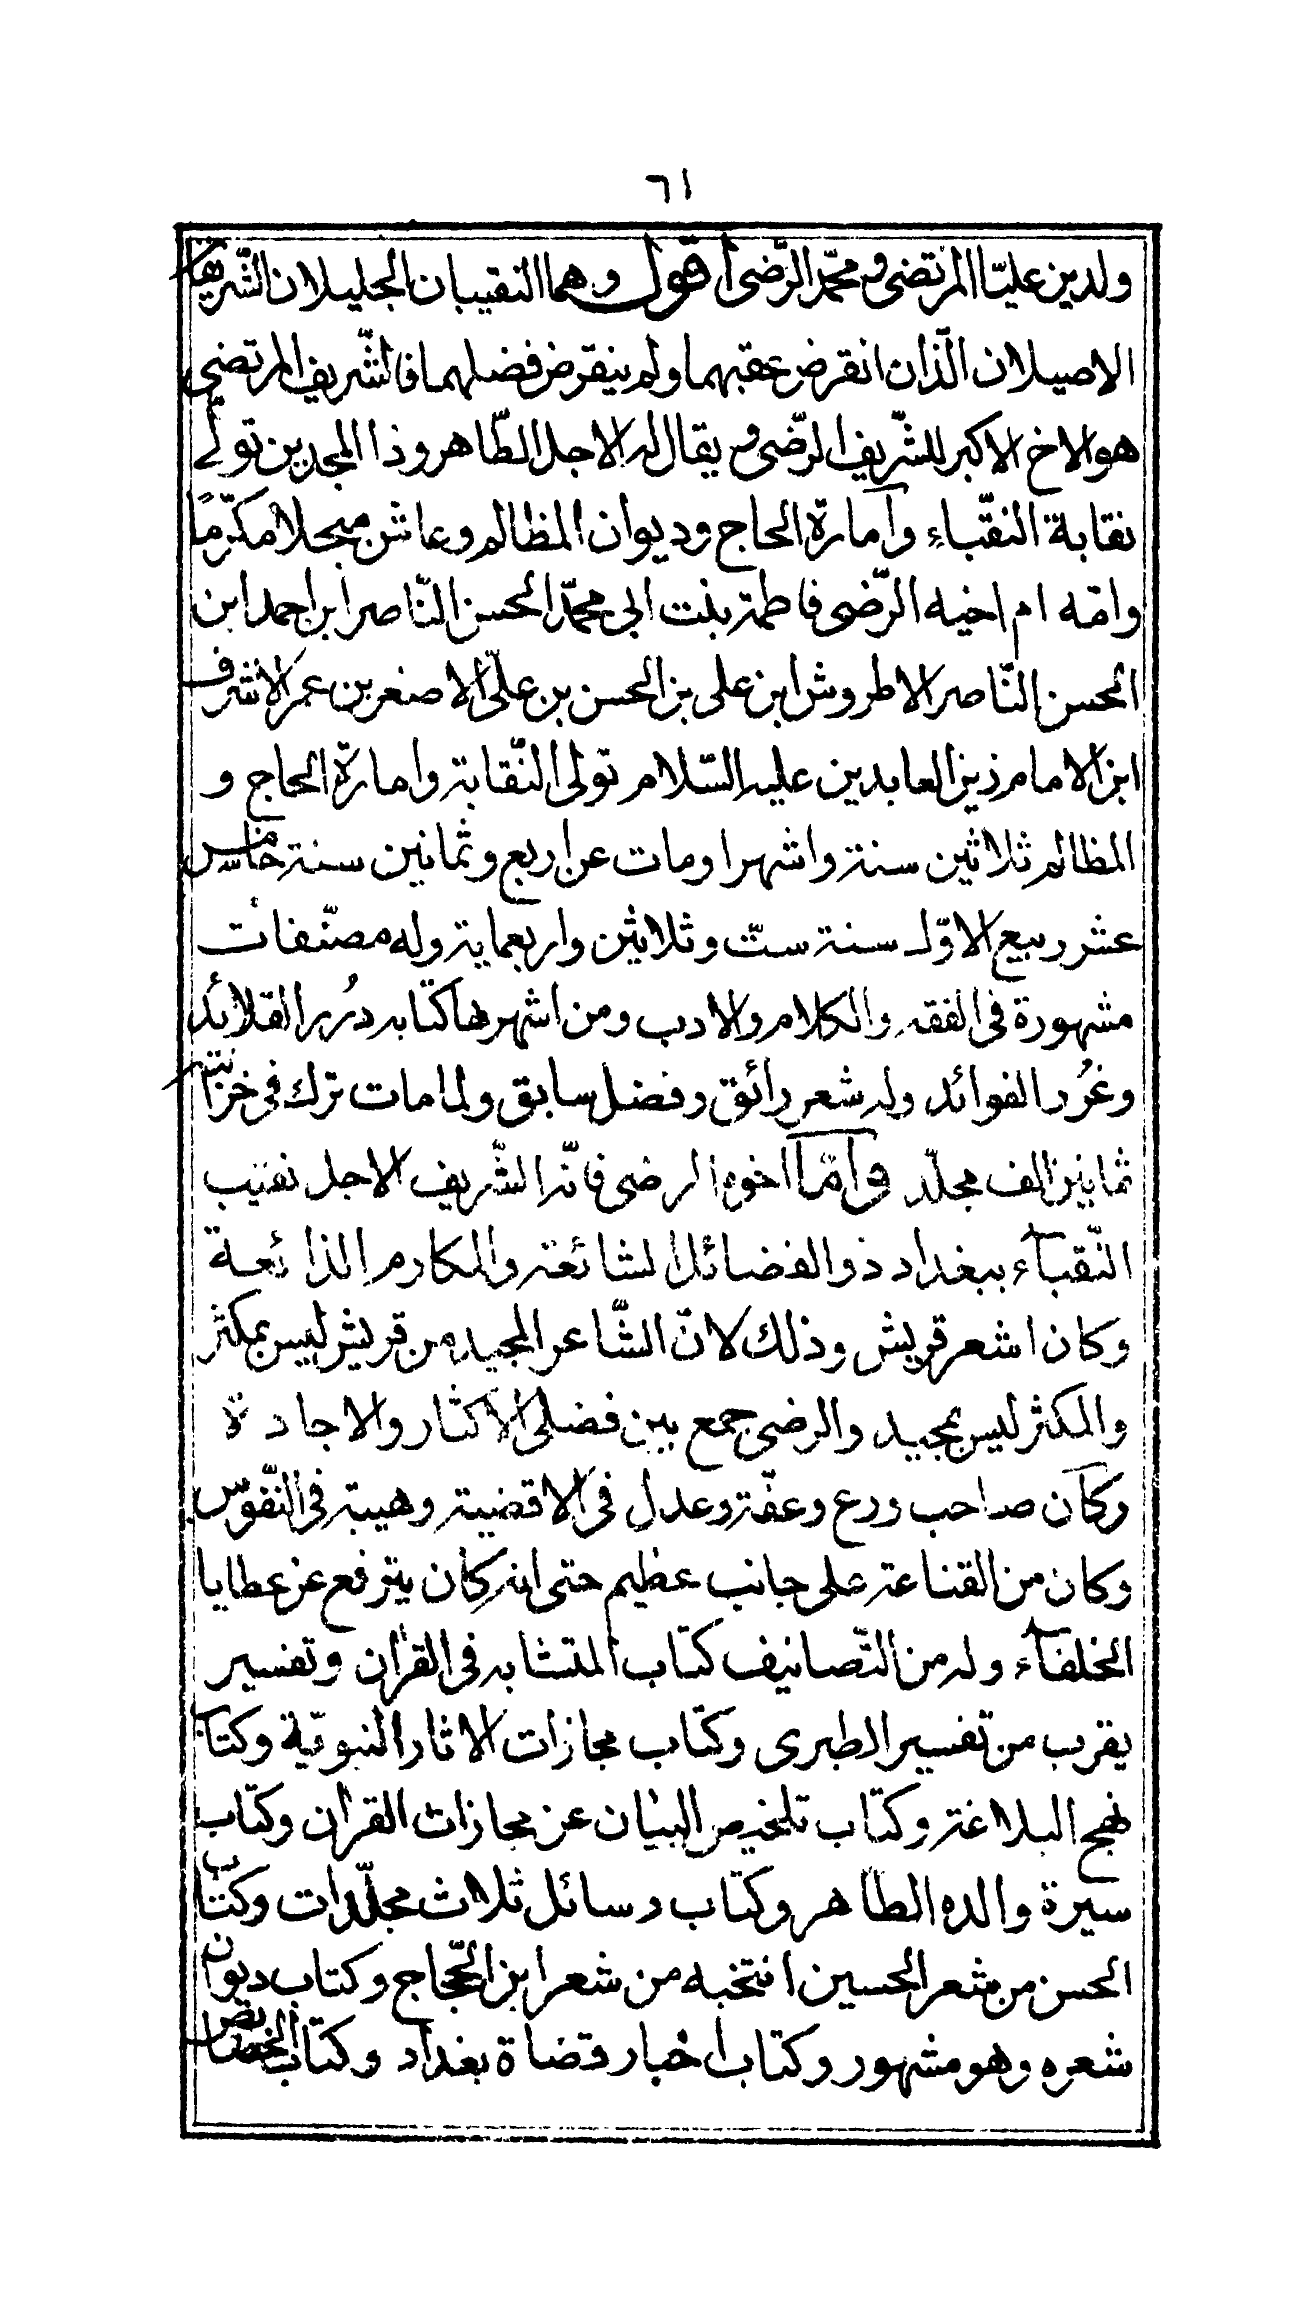 ٦١
ولدين عليّا المرتضى و محمّد الرّضى اقول و هما النقيبان الجليلان الشّريفان
الاصيلان الّذان انقرض عقبهما ولم ينقرض فضلهما فالشّريف المرتضى
هو الاخ الاكبر للشّريف الرّضى و يقال له الاجل الطّاهر و ذا المجدين تولّى
نقابة النقّباء وآمارة الحاج وديوان المظالم وعاش مبجلا مكرّمًا
وامّه ام اخيه الرّضى فاطمة بنت ابى محمّد الحسن النّاصر ابن احمد ابن
الحسن النّاصر الاطروش ابن على بن الحسن بن علىّ الاصغر بن عمر الاشرف
ابن الامام زين العابدين عليه السّلام تولى النّقابة وامارة الحاج و
المظالم ثلاثين سنة واشهرا ومات عن اربع وثمانين سنة خامس
عشر ربيع الاوّل سنة ستّ وثلاثين واربعماية وله مصنّفات
مشهورة فى الفقه والكلام والادب ومن اشهرها كتابه دُرر القلائد
وغُرر الفوائد وله شعر رائق وفضل سابق ولما مات ترك فى خزانته
ثمانين الف مجلّد وامّا اخوه الرضى فانّه الشّريف الاجل نقيب
النّقبآء ببغداد ذو الفضائل الشائعة والمكارم الذائعة
وكان اشعر قريش وذلك لانّ الشّاعر المجيد من قريش ليس بمكثر
والمكثر ليس بمجيد والرضى جمع بين فضلى الاكثار والاجادة
وكان صاحب ورع وعفّة وعدل فى الاقضية وهيبة فى النّفوس
وكان من القناعة على جانب عظيم حتى انه كان يترفع عن عطايا
الخلفآء وله من التّصانيف كتاب المتشابه فى القرآن وتفسير
يقرب من تفسير الطبرى وكتاب مجازات الاثار النبويّة وكتاب
نهج البلاغة وكتاب تلخيص البيان عن مجازات القرآن وكتاب
سيرة والده الطاهر وكتاب رسائل ثلاث مجلّدات وكتاب
الحسن من شعر الحسين انتخبه من شعر ابن الحّجاج وكتاب ديوان
شعره وهو مشهور وكتاب اخبار قضاة بغداد وكتاب الخصائص